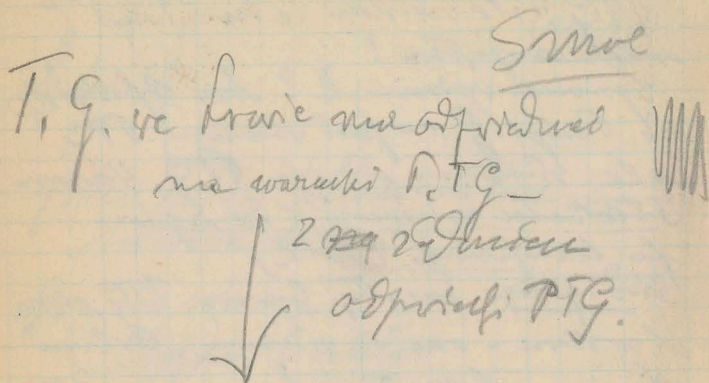 Smol
T. G. we Lwowie ma odpowiedzieć
na warunki P. TG
z żądaniem
odpowiedzi PTG.